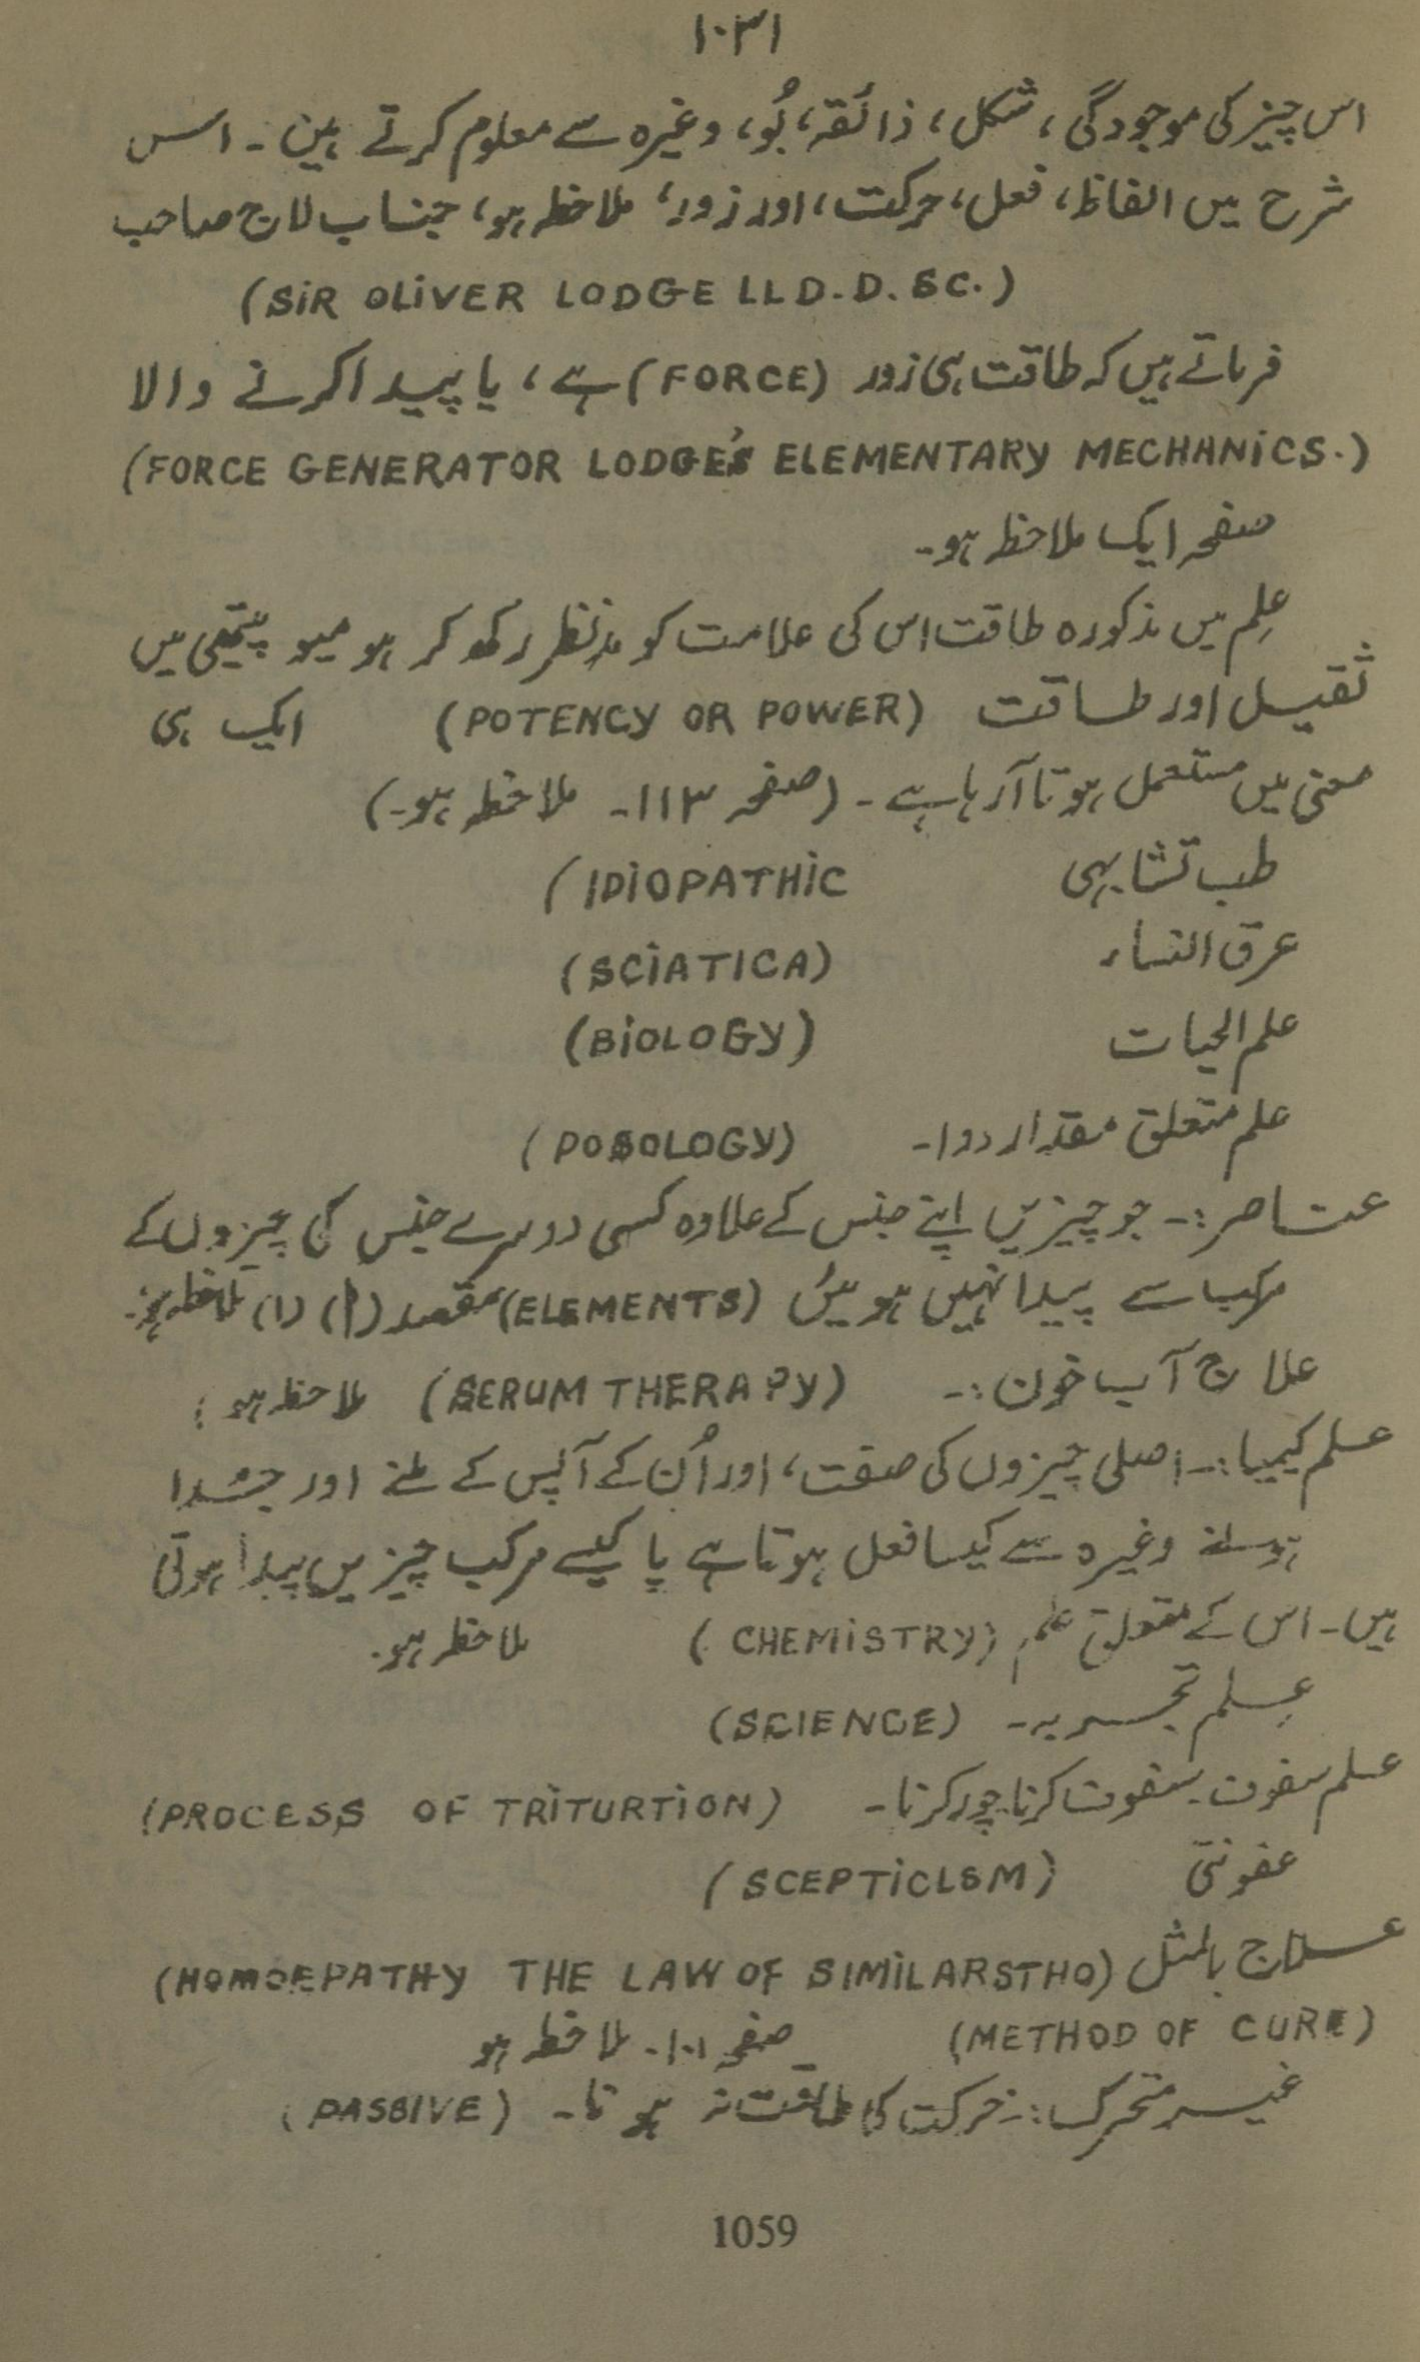 ۱۰۳۱
اس چیز کی موجودگی، شکل، ذائقہ، بُو، وغیرہ سے معلوم کرتے ہین۔ اس
شرح میں الفاظ، فعل، حرکت، اور زور، ملاحظہ ہو، جناب لاج صاحب
(SIR OLIVER LODGE LLD.D.SC.)
فرماتے ہیں کہ طاقت ہی زور (FORCE) ہے، یا پیدا کرنے والا
(FORCE GENERATOR LODGE'S ELEMENTARY MECHANICS.)
صفحہ ایک ملاحظہ ہو۔
عِلم میں مذکورہ طاقت اس کی علامت کو مدِنظر رکھ کر ہومیو پیتھی میں
ثقیل اور طاقت (POTENCY OR POWER) ایک ہی
معنی میں مستعمل ہوتا آرہا ہے۔ (صفحہ ۱۱۳۔ ملاحظہ ہو۔)
طب تشابہی (IDIOPATHIC
عرق النساء (SCIATICA)
علم الحیات (BIOLOGY)
علم متعلق مقدار دوا۔ (POSOLOGY)
عناصر:۔ جو چیزیں اپنے جنس کے علاوہ کسی دوسرے جنس کی چیزوں کے
مرکب سے پیدا نہیں ہوئیں (ELEMENTS) مقصد (۱) (۱) ملاحظہ ہو۔
علاج آب خون:۔ (SERUM THERAPY) ملاحظہ ہو:
علم کیمیا:۔ اصلی چیزوں کی صفت، اور اُن کے آپس کے ملنے اور جُدا
ہونے وغیرہ سے کیسا فعل ہوتا ہے یا کیسے مرکب چیزیں پیدا ہوتی
ہیں۔ اس کے متعلق علم (CHEMISTRY) ملاحظہ ہو۔
عِلم تجربہ۔ (SCIENCE)
علم سفوف۔ سفوف کرنا چور کرنا۔ (PROCESS OF TRITURTION)
عفونتی (SCEPTICLSM)
علاج بالمثل (HOMOEPATHY THE LAW OF SIMILARSTHO)
(METHOD OF CURE) صفحہ ۱۰۱۔ ملاحظہ ہو
غیر متحرک:۔ حرکت کی طاقت نہ ہونا۔ (PASSIVE)
1059